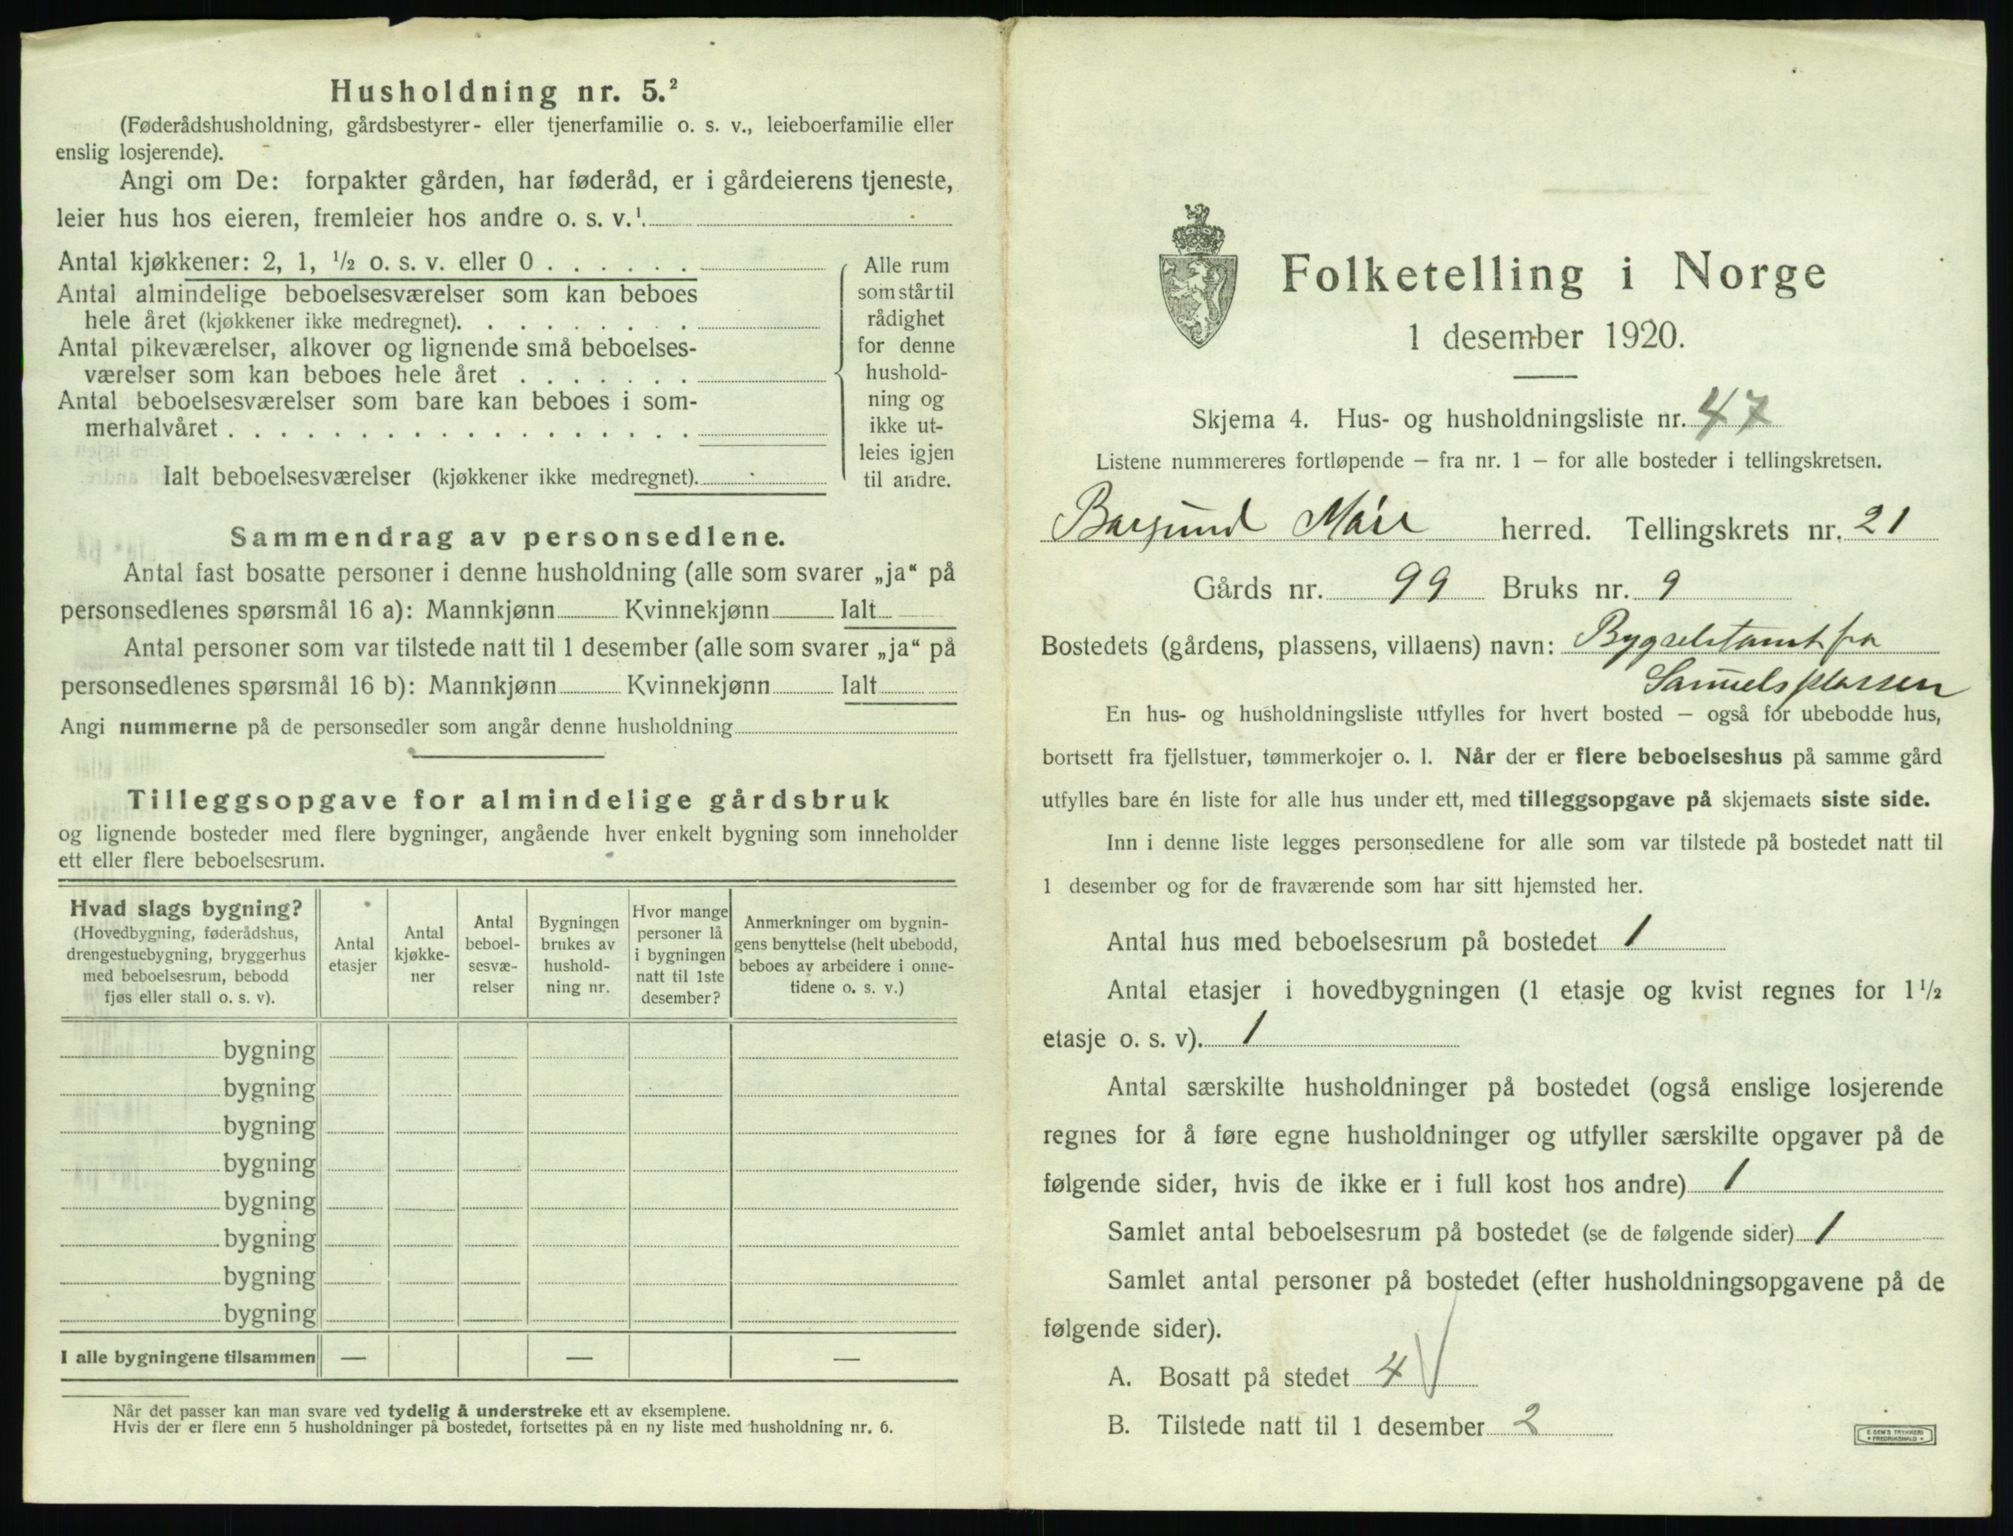 Husholdning nr. 5.²
(Føderådshusholdning, gårdsbestyrer- eller tjenerfamilie o. s. v., leieboerfamilie eller
enslig losjerende).
Angi om De: forpakter gården, har føderåd, er i gårdeierens tjeneste,
leier hus hos eieren, fremleier hos andre o. s. v.¹
Antal kjøkkener: 2, 1, ½ o. s. v. eller 0
Antal almindelige beboelsesværelser som kan beboes
hele året (kjøkkener ikke medregnet).
Antal pikeværelser, alkover og lignende små beboelses-
værelser som kan beboes hele året
Antal beboelsesværelser som bare kan beboes i som-
merhalvåret
Ialt beboelsesværelser (kjøkkener ikke medregnet).
Alle rum
som står til
rådighet
for denne
hushold-
ning og
ikke ut-
leies igjen
til andre.
Sammendrag av personsedlene.
Antal fast bosatte personer i denne husholdning (alle som svarer „ja“ på
personsedlenes spørsmål 16 a): Mannkjønn Kvinnekjønn Ialt
Antal personer som var tilstede natt til 1 desember (alle som svarer „ja“ på
personsedlenes spørsmål 16 b): Mannkjønn Kvinnekjønn Ialt
Angi nummerne på de personsedler som angår denne husholdning
Tilleggsopgave for almindelige gårdsbruk
og lignende bosteder med flere bygninger, angående hver enkelt bygning som inneholder
ett eller flere beboelsesrum.
Hvad slags bygning?
(Hovedbygning, føderådshus,
drengestuebygning, bryggerhus
med beboelsesrum, bebodd
fjøs eller stall o. s. v).
Antal
etasjer
Antal
kjøkke-
ner
Antal
beboel-
sesvæ-
relser
Bygningen
brukes av
hushold-
ning nr.
Hvor mange
personer lå
i bygningen
natt til 1ste
desember?
Anmerkninger om bygnin-
gens benyttelse (helt ubebodd,
beboes av arbeidere i onne-
tidene o. s. v.)
bygning
bygning
bygning
bygning
bygning
bygning
bygning
bygning
I alle bygningene tilsammen — — —
Når det passer kan man svare ved tydelig å understreke ett av eksemplene.
Hvis der er flere enn 5 husholdninger på bostedet, fortsettes på en ny liste med husholdning nr. 6.
Folketelling i Norge
1 desember 1920.
Skjema 4. Hus- og husholdningsliste nr. 47
Listene nummereres fortløpende – fra nr. 1 – for alle bosteder i tellingskretsen.
Borgund Möre herred. Tellingskrets nr. 21
Gårds nr. 99 Bruks nr. 9
Bostedets (gårdens, plassens, villaens) navn: Bygselstomt fra
Samuelsplassen
En hus- og husholdningsliste utfylles for hvert bosted – også for ubebodde hus,
bortsett fra fjellstuer, tømmerkojer o. l. Når der er flere beboelseshus på samme gård
utfylles bare én liste for alle hus under ett, med tilleggsopgave på skjemaets siste side.
Inn i denne liste legges personsedlene for alle som var tilstede på bostedet natt til
1 desember og for de fraværende som har sitt hjemsted her.
Antal hus med beboelsesrum på bostedet 1
Antal etasjer i hovedbygningen (1 etasje og kvist regnes for 1½
etasje o. s. v). 1
Antal særskilte husholdninger på bostedet (også enslige losjerende
regnes for å føre egne husholdninger og utfyller særskilte opgaver på de
følgende sider, hvis de ikke er i full kost hos andre) 1
Samlet antal beboelsesrum på bostedet (se de følgende sider) 1
Samlet antal personer på bostedet (efter husholdningsopgavene på de
følgende sider).
A. Bosatt på stedet 4 V
B. Tilstede natt til 1 desember 2
E. SEM'S TRYKKERI
FREDRIKSHALD